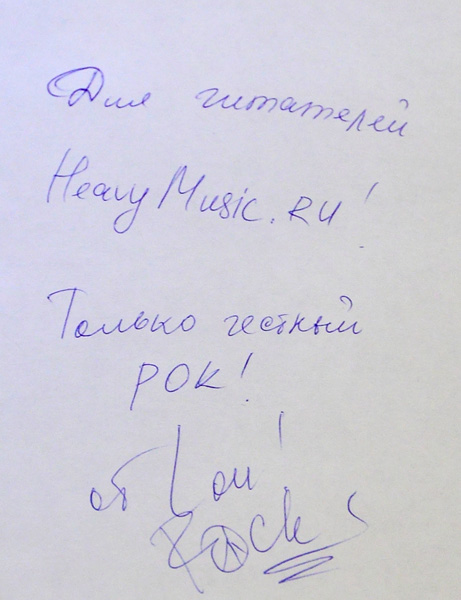 Для читателей
HeavyMusic.RU!
Только честный
РОК!
от Lou!
Rock